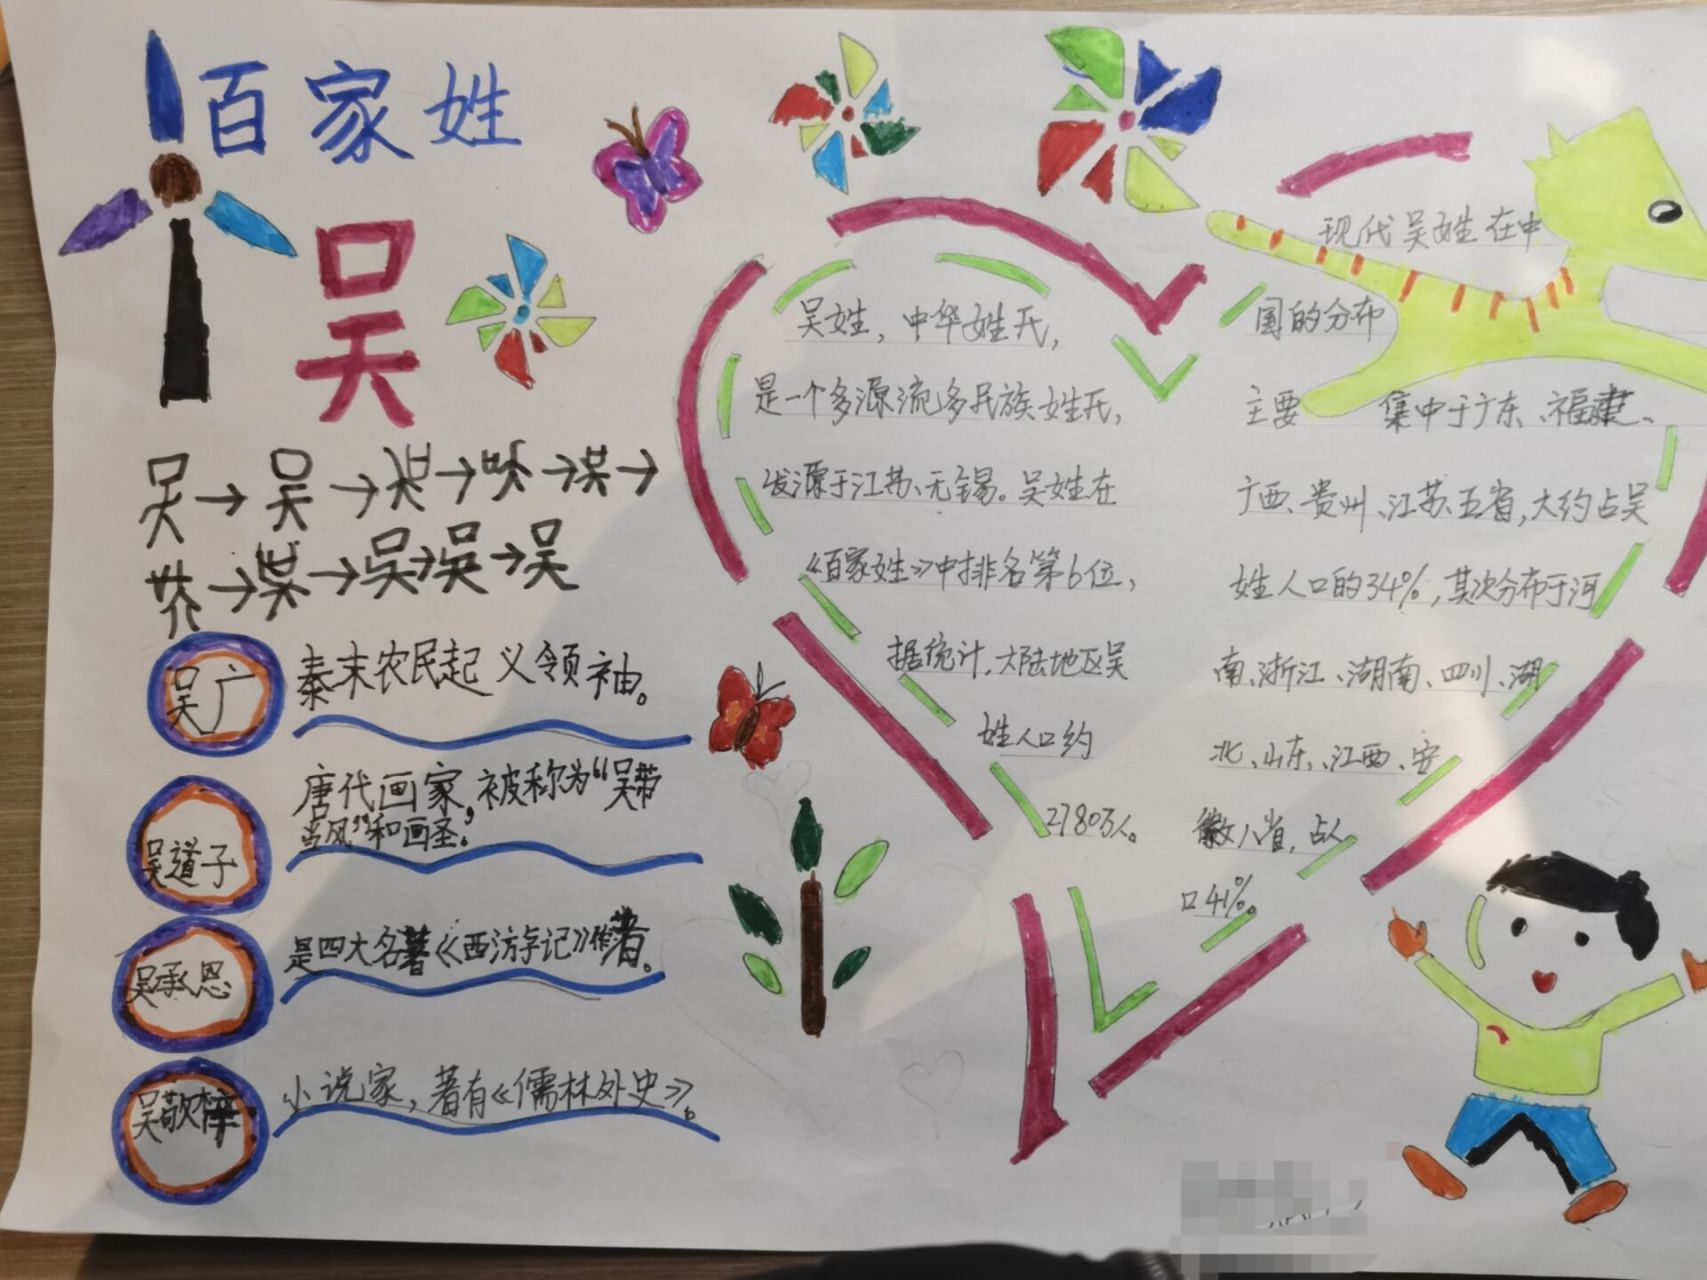 百家姓
吴
吴→吴→
→吴→吴→吴
吴广
秦末农民起义领袖。
吴道子
唐代画家,被称为“吴带
当风”和画圣。
吴承恩
是四大名著《西游记》作者。
吴敬梓
小说家,著有《儒林外史》。
吴姓,中华姓氏,
是一个多源流多民族姓氏,
发源于江苏、无锡。吴姓在
《百家姓》中排名第6位,
据统计,大陆地区吴
姓人口约
2780万人。
现代吴姓在中
国的分布
主要 集中于广东、福建、
广西、贵州、江苏、五省,大约占吴
姓人口的34%,其次分布于河
南、浙江、湖南、四川、湖
北、山东、江西、安
徽八省,占人
口41%。